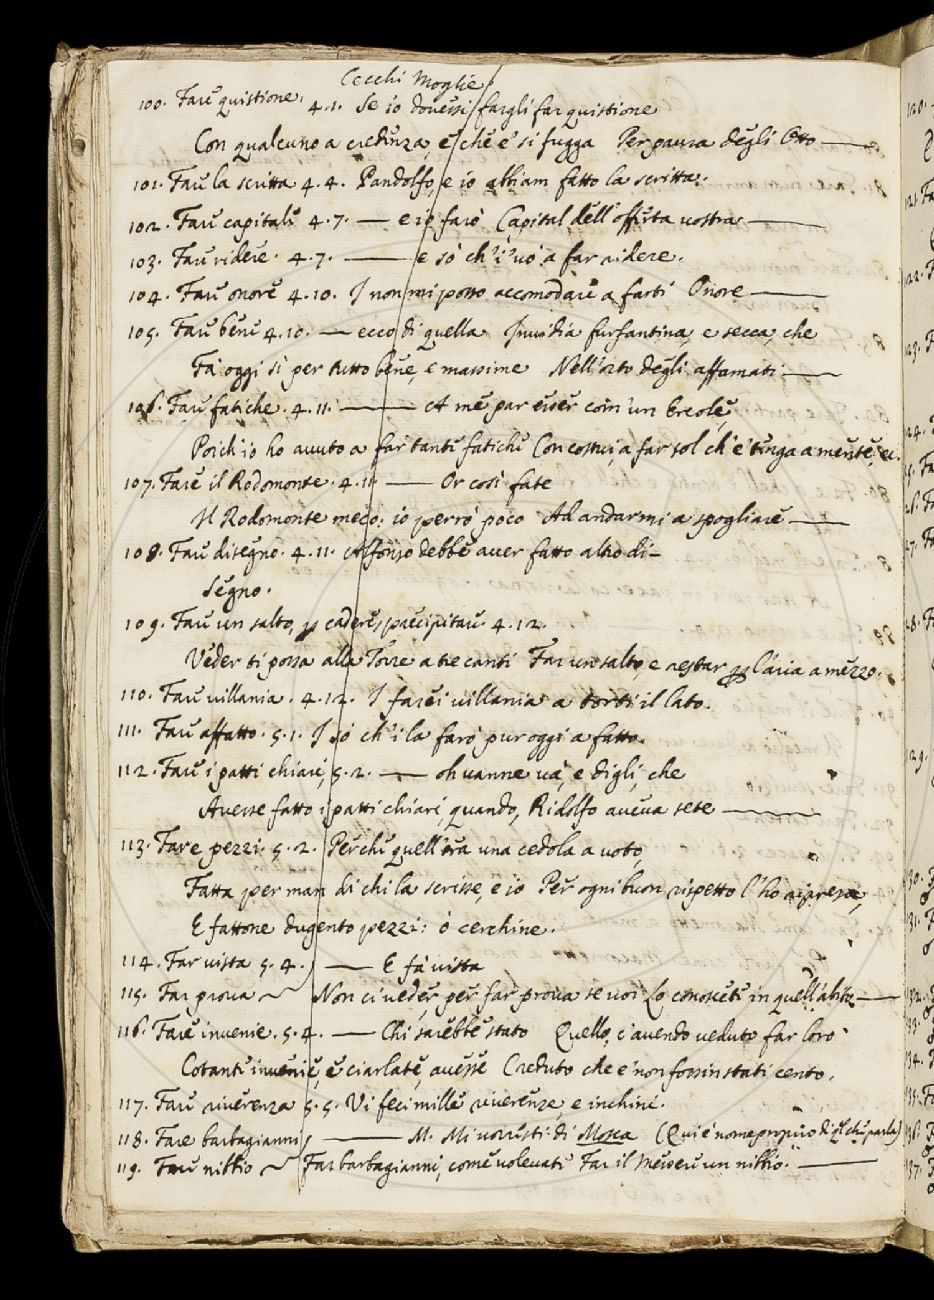 Cecchi Moglie
100. Fare quistione. 4.1. Se io dovessi fargli far quistione
Con qualcuno a credenza, e che e' si fugga Per paura degli Otto
101. Fare la scritta 4.4. Pandolfo, e io abbiam fatto la scritta.
102. Fare capitale 4.7. — e io farò Capital dell'offerta vostra
103. Fare ridere. 4.7. — e so ch'i' vo' a far ridere.
104. Fare onore 4.10. I non mi posso accomodare a farti Onore
105. Fare bene 4.10. — ecco di quella Invidia furfantina, e secca, che
Fa oggi sì per tutto bene, e massime Nell'orto degli affamati
106. Fare fatiche. 4.11. — A me par esser com'un Ercole,
Poich'io ho avuto a far tante fatiche Con costui, a far sol ch'e' tenga a mente, ec.
107. Fare il Rodomonte. 4.11. — Or così fate
Il Rodomonte meco: io perrò poco Ad andarmi a spogliare
108. Fare disegno. 4.11. Alfonso debbe aver fatto altro di-
segno.
109. Fare un salto, p cadere, precipitare 4.12.
Veder ti possa alla Torre a tre canti Far un salto, e restar p l'aria a mezzo.
110. Fare villania. 4.12. I farei villania a torti il lato.
111. Fare affatto. 5.1. I so ch'i la farò pur oggi a fatto.
112. Fare i patti chiari, 5.2. — oh vanne va', e digli, che
Avesse fatto i patti chiari, quando, Ridolfo aveva sete
113. Fare pezzi 5.2. Perchè quell'era una cedola a voto,
Fatta per man di chi la scrisse, e io Per ogni buon rispetto l'ho ripresa,
E fattone dugento pezzi: ò cerchine.
114. Far vista 5.4. — E fa vista
115. Far prova Non ci veder, per far prova se voi Lo conoscete in quell'abito
116. Fare invenie. 5.4. — Chi sarebbe stato Quello, c'avendo veduto far loro
Cotante invenie, e ciarlate, avesse Creduto che e' non fossin stati cento.
117. Fare riverenza 5.5. Vi feci mille riverenze, e inchini.
118. Fare barbagianni, — M. Mi voresti: di Mosca (Qui è nome proprio di ql che parla)
119. Fare nibbio Far barbagianni, come volevate Far il Messere un nibbio.